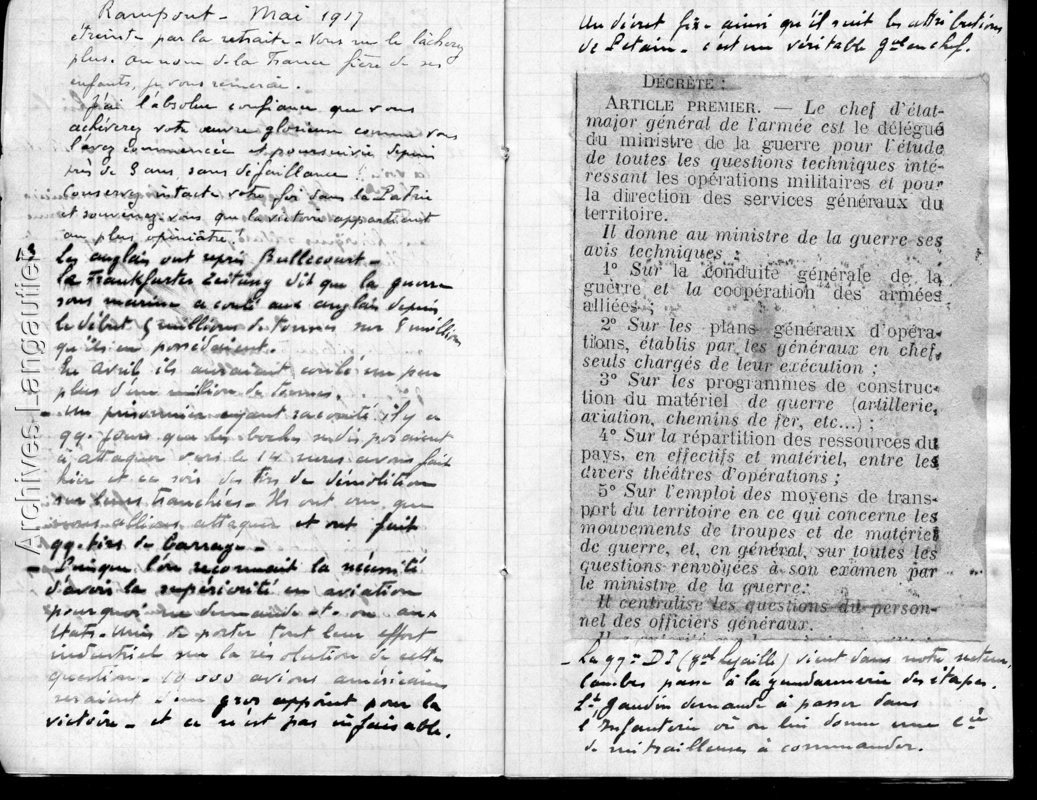 Rampont - Mai 1917
étreinte par la retraite - Vous ne le lâcherez
plus. Au nom de la France fière de ses
enfants, je vous remercie.
J'ai l'absolue confiance que vous
achèverez votre œuvre glorieuse comme vous
l'avez commencée et poursuivie depuis
près de 3 ans, sans défaillance !
Conservez intacte votre foi dans la Patrie
et souvenez vous que la victoire appartient
au plus opiniâtre !
13 Les anglais ont repris Bullecourt -
La Frankfurter Zeitung dit que la guerre
sous marine a coulé aux anglais depuis
le début 5 millions de tonnes sur 8 millions
qu'ils en possédaient.
En Avril ils auraient coulé un peu
plus d'un million de tonnes.
- Un prisonnier ayant raconté il y a
qq. jours que les boches se disposaient
à attaquer vers le 14 nous avons fait
hier et ce soir des tirs de démolition
sur leurs tranchées - Ils ont cru que
nous allions attaquer et ont fait
qq. tirs de barrage -
- Puisque l'on reconnait la nécessité
d'avoir la supériorité en aviation
pourquoi ne demande-t-on aux
Etats-Unis de porter tout leur effort
industriel sur la résolution de cette
question - 10 000 avions américains
seraient d'un gros appoint pour la
victoire - et ce n'est pas infaisable.
Archives Langautier
Un décret fixe ainsi qu'il suit les attributions
de Pétain - c'est un véritable gal en chef.
DÉCRÈTE :
ARTICLE PREMIER. — Le chef d'état-
major général de l'armée est le délégué
du ministre de la guerre pour l'étude
de toutes les questions techniques inté-
ressant les opérations militaires et pour
la direction des services généraux du
territoire.
Il donne au ministre de la guerre ses
avis techniques :
1° Sur la conduite générale de la
guerre et la coopération des armées
alliées ;
2° Sur les plans généraux d'opéra-
tions, établis par les généraux en chef,
seuls chargés de leur exécution ;
3° Sur les programmes de construc-
tion du matériel de guerre (artillerie,
aviation, chemins de fer, etc...) ;
4° Sur la répartition des ressources du
pays, en effectifs et matériel, entre les
divers théâtres d'opérations ;
5° Sur l'emploi des moyens de trans-
port du territoire en ce qui concerne les
mouvements de troupes et de matériel
de guerre, et, en général, sur toutes les
questions renvoyées à son examen par
le ministre de la guerre.
Il centralise les questions du person-
nel des officiers généraux.
- La 97e DI (gal Lejaille) vient dans notre secteur.
Combes passe à la gendarmerie des étapes.
Lt Gaudin demande à passer dans
l'Infanterie où on lui donne une Cie
de mitrailleuses à commander.